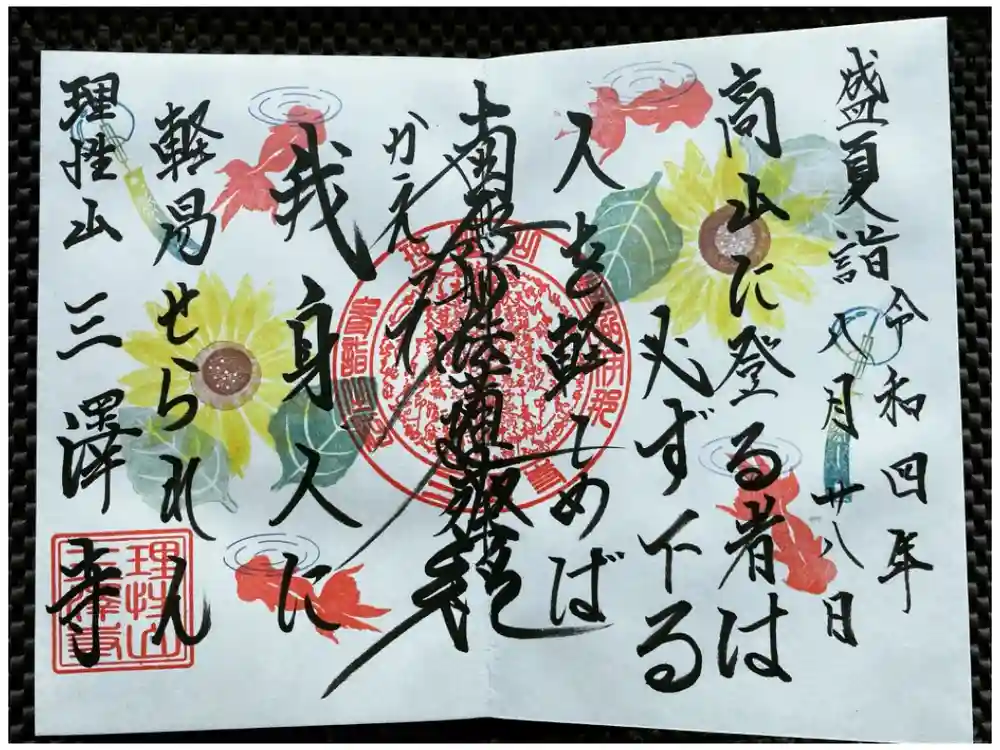 盛夏詣 令和四年
八月廿八日
高山に登る者は
必ず下る
人を軽しめば
南無妙法蓮華経
かえって
我身人に
軽易せられん
理性山 三澤寺
理性山
三澤寺